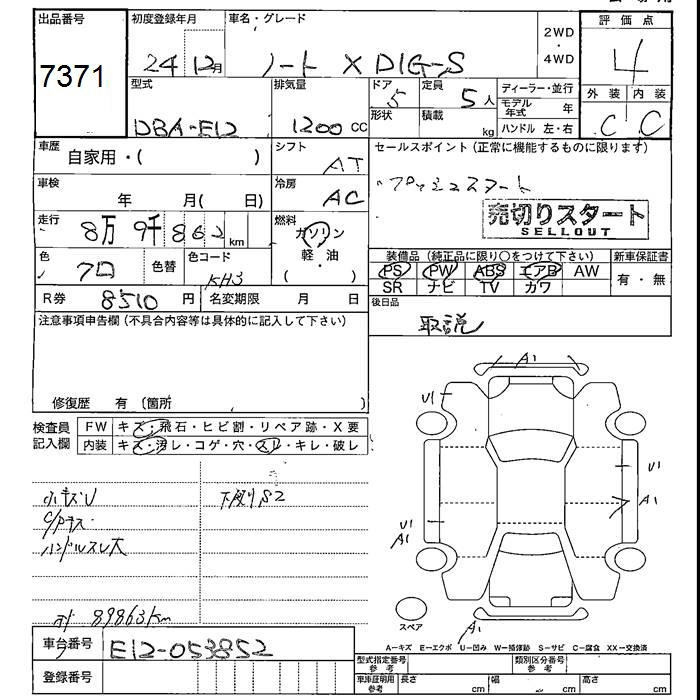 出品番号
7371
初度登録年月
24 12月
車名・グレード
ノート X DIG-S
2WD
・
4WD
評価点
4
外装 内装
C C
型式
DBA-E12
排気量
1200 CC
ドア
5
形状
定員
5 人
積載
kg
ディーラー・並行
モデル年式 年
ハンドル 左・右
車歴
自家用・( )
シフト
AT
セールスポイント (正常に機能するものに限ります)
プッシュスタート
売切りスタート
SELLOUT
車検
年 月( 日)
冷房
AC
走行
8万 9千 862 km
燃料
ガソリン
軽・油
( )
色
色替
色コード
KH3
装備品 (純正品に限り○をつけて下さい)
PS PW ABS エアB AW
SR ナビ TV カワ
新車保証書
有・無
R券 8510 円
名変期限 月 日
後日品
取説
注意事項申告欄 (不具合内容等は具体的に記入して下さい)
修復歴 有 (箇所 )
検査員
記入欄
FW キズ・飛石・ヒビ割・リペア跡・X要
内装 キズ・汚レ・コゲ・穴・スレ・キレ・破レ
小キズU
下廻りS2
ハンドルスレ大
89863km
A1
U1
U1
A1
U1
A1
A1
スペア
A-キズ E-エクボ U-凹み W-補修跡 S-サビ C-腐食 XX-交換済
車台番号
E12-053852
登録番号
型式指定番号
参考
類別区分番号
参考
車庫証明用
参考
長さ cm
幅 cm
高さ cm